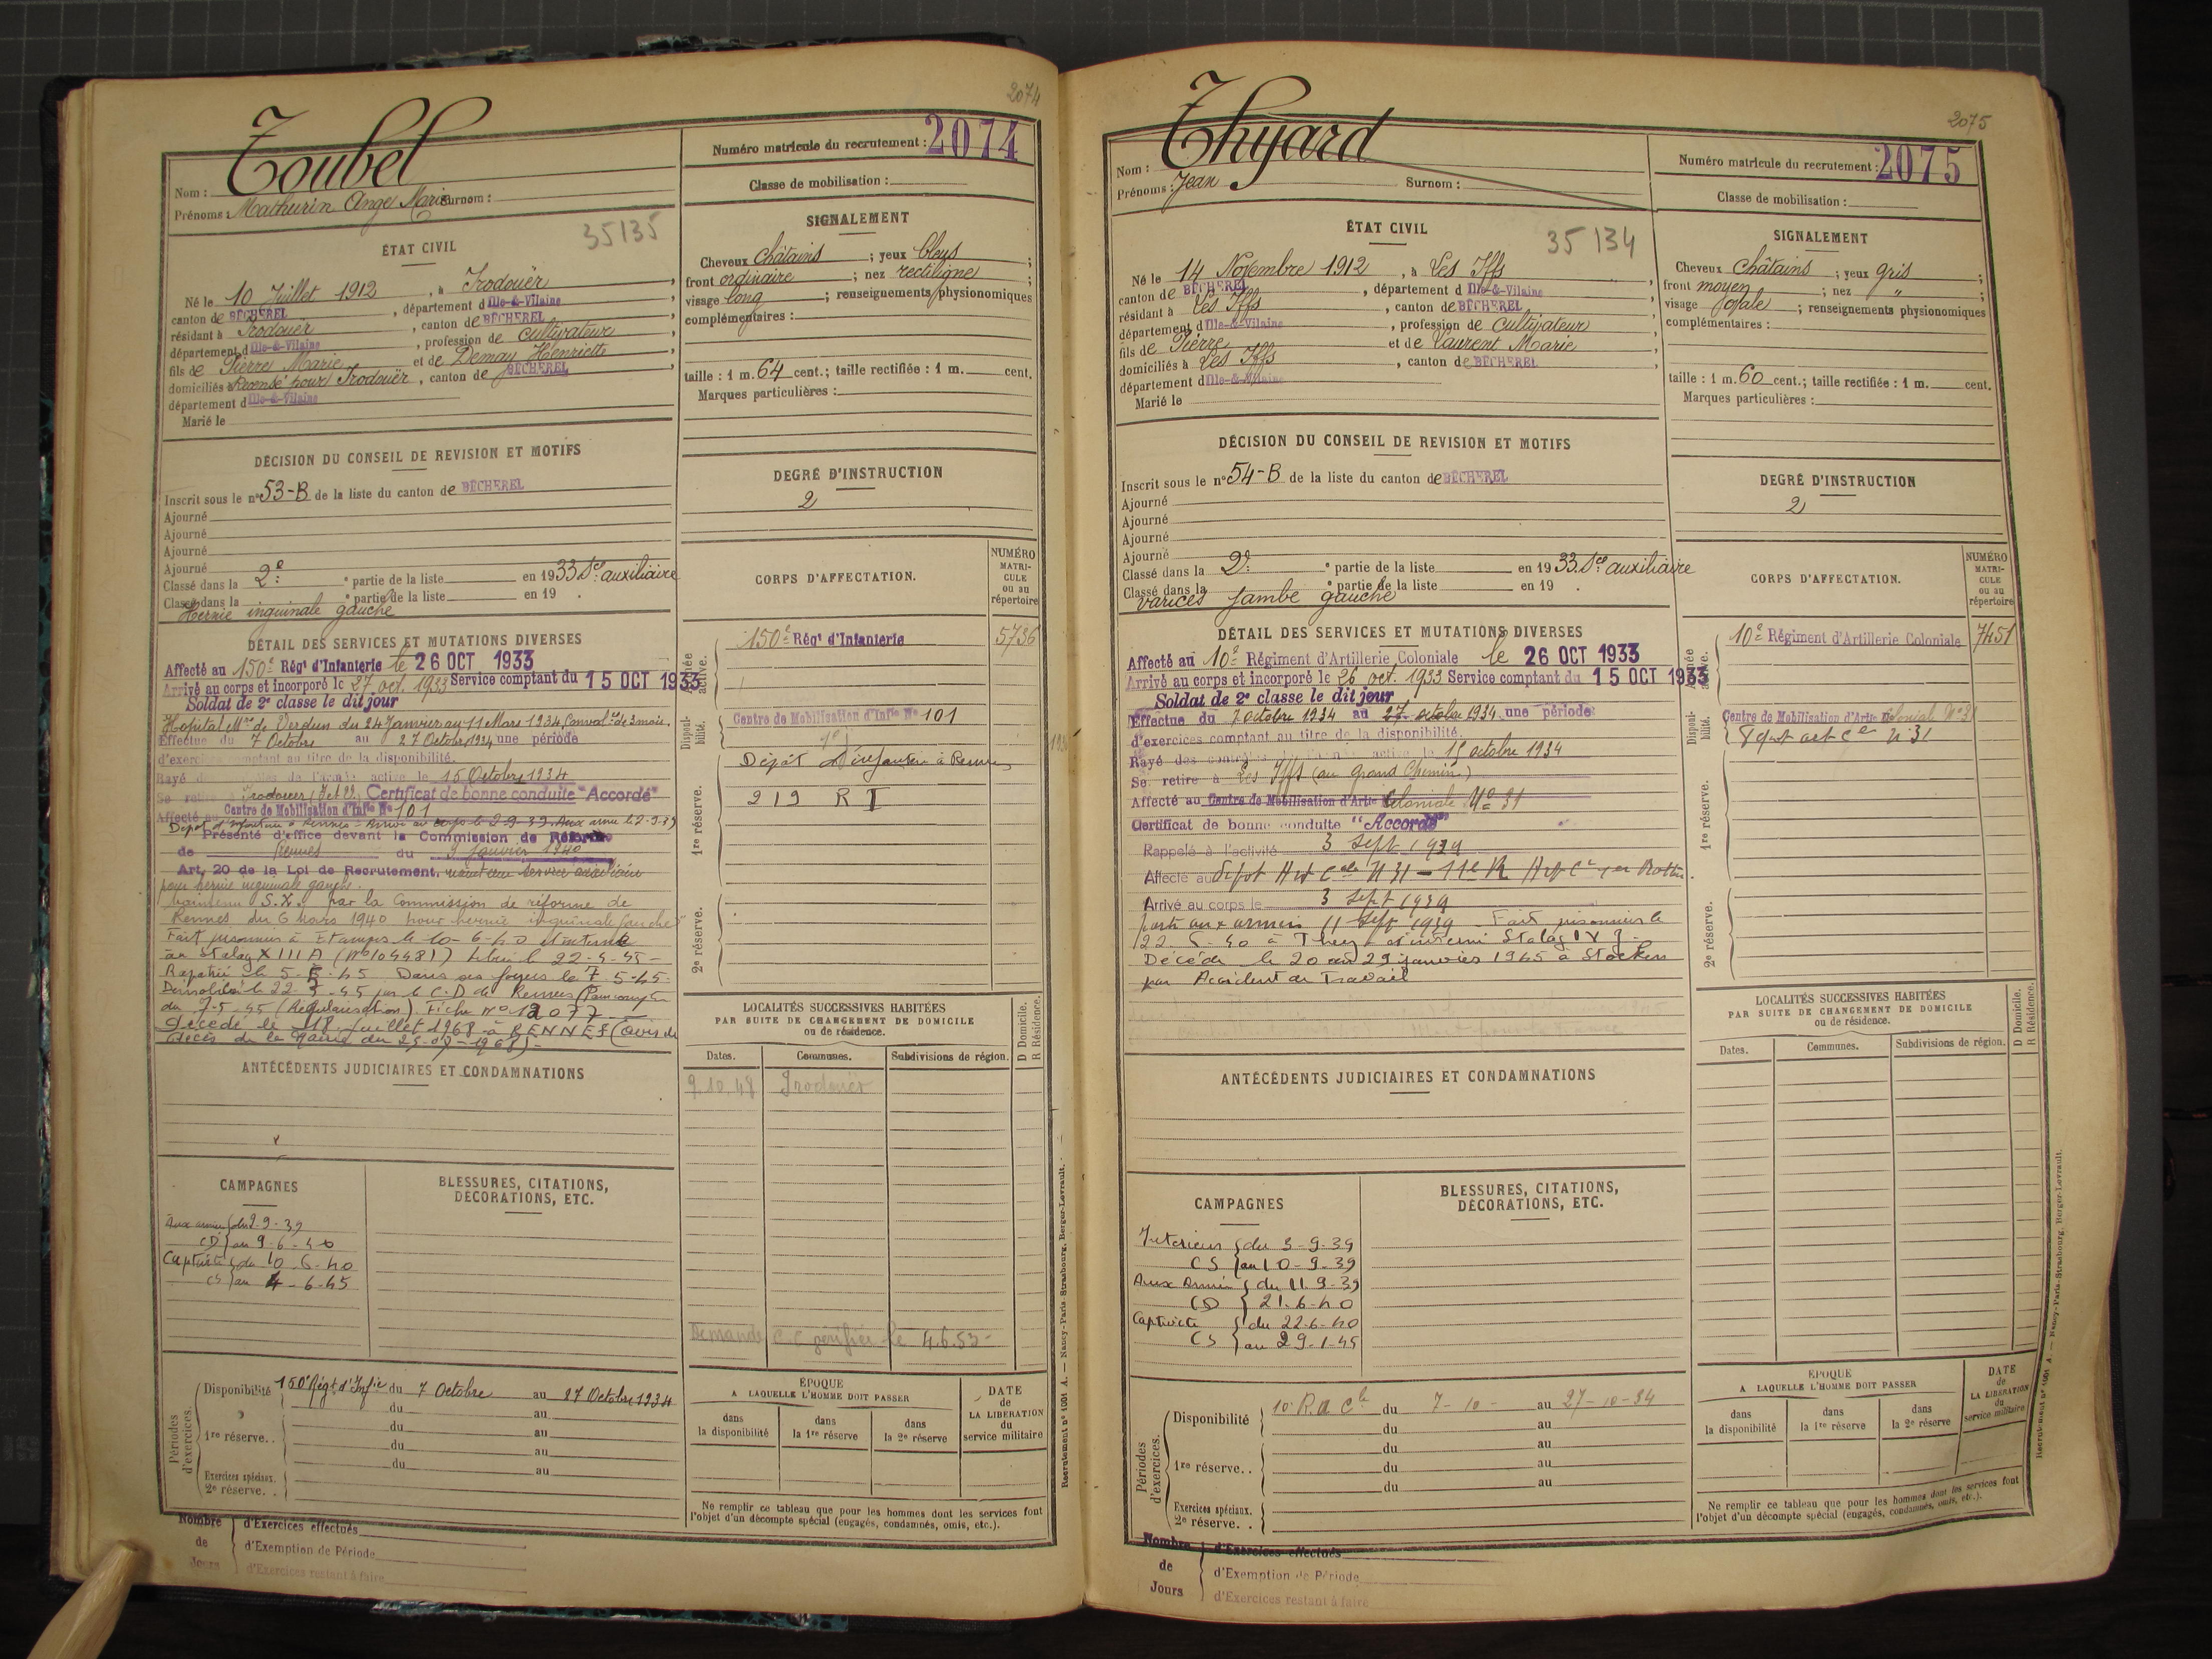 2074
Toubel
Nom :
Prénoms : Mathurin Ange Marie Surnom :
Numéro matricule du recrutement : 2074
Classe de mobilisation :
35135
ÉTAT CIVIL
Né le 10 Juillet 1912, à Irodouër,
canton de BÉCHEREL, département d Ille-&-Vilaine,
résidant à Irodouër, canton de BÉCHEREL,
département d Ille-&-Vilaine, profession de cultivateur,
fils de Pierre Marie et de Demay Henriette,
domiciliés à Recensé pour Irodouër, canton de BÉCHEREL,
département d Ille-&-Vilaine
Marié le
SIGNALEMENT
Cheveux châtains ; yeux bleus ;
front ordinaire ; nez rectiligne ;
visage long ; renseignements physionomiques
complémentaires :
taille : 1 m. 64 cent.; taille rectifiée : 1 m. cent.
Marques particulières :
DÉCISION DU CONSEIL DE REVISION ET MOTIFS
Inscrit sous le n° 53-B de la liste du canton de BÉCHEREL
Ajourné
Ajourné
Ajourné
Ajourné
Classé dans la 2e partie de la liste en 1933 Sce auxiliaire
Classé dans la partie de la liste en 19 .
Hernie inguinale gauche
DEGRÉ D'INSTRUCTION
2
DÉTAIL DES SERVICES ET MUTATIONS DIVERSES
Affecté au 150e Régt d'Infanterie le 26 OCT 1933
Arrivé au corps et incorporé le 27 oct. 1933 Service comptant du 15 OCT 1933
Soldat de 2e classe le dit jour
Hopital Mre de Verdun du 24 Janvier au 11 Mars 1934 Convalce de 3 mois.
Effectue du 7 Octobre au 27 Octobre 1934 une période
d'exercices comptant au titre de la disponibilité.
Rayé des contrôles de l'armée active le 15 Octobre 1934
Se retire à Irodouër, Certificat de bonne conduite "Accordé"
Affecté au Centre de Mobilisation d'Infie No 101
Dépôt d'infanterie à Rennes - Arrivé au corps le 2-9-39. Aux armées le 2-9-39
Présenté d'office devant la Commission de Réforme
de Rennes du 9 Janvier 1940
Art. 20 de la Loi de Recrutement, maintenu service auxiliaire
pour hernie inguinale gauche.
Maintenu S.X. par la Commission de réforme de
Rennes du 6 Mars 1940 pour hernie inguinale gauche
Fait prisonnier à Etampes le 10-6-40 et interné
au Stalag XIII A (No 104481) Libéré le 22-4-45 -
Rapatrié le 5-5-45 Dans ses foyers le 7-5-45.
Démobilisé le 22-7-45 par le C.D de Rennes
du 7-5-45 (Régularisation). Fiche No 12077
Décédé le 18 juillet 1968 à RENNES (avis de
décès de la Mairie du 25-07-1968) -
CORPS D'AFFECTATION.
NUMÉRO MATRICULE ou au répertoire
Armée active.
150e Régt d'Infanterie 5736
Disponibilité.
Centre de Mobilisation d'Infie No 101
1re réserve.
Dépôt d'Infanterie à Rennes
219 R I
2e réserve.
LOCALITÉS SUCCESSIVES HABITÉES
PAR SUITE DE CHANGEMENT DE DOMICILE
ou de résidence.
D Domicile. R Résidence.
Dates. Communes. Subdivisions de région.
9.10.48 Irodouër
Demande C.C vérifiée le 4.6.53 -
ANTÉCÉDENTS JUDICIAIRES ET CONDAMNATIONS
CAMPAGNES
BLESSURES, CITATIONS,
DÉCORATIONS, ETC.
Aux armées du 2-9-39
CD au 9-6-40
Captivité du 10-6-40
CS au 4-6-45
Périodes d'exercices.
Disponibilité 150e Régt d'Infie du 7 Octobre au 27 Octobre 1934
du au
1re réserve.. du au
du au
du au
Exercices spéciaux.
2e réserve. .
ÉPOQUE
A LAQUELLE L'HOMME DOIT PASSER
dans la disponibilité
dans la 1re réserve
dans la 2e réserve
DATE de LA LIBÉRATION du service militaire
Ne remplir ce tableau que pour les hommes dont les services font
l'objet d'un décompte spécial (engagés, condamnés, omis, etc.).
Nombre de Jours
d'Exercices effectués
d'Exemption de Période
d'Exercices restant à faire
Recrutement n° 1001 A. — Nancy-Paris-Strasbourg, Berger-Levrault.
2075
Thyard
Nom :
Prénoms : Jean Surnom :
Numéro matricule du recrutement : 2075
Classe de mobilisation :
35134
ÉTAT CIVIL
Né le 14 Novembre 1912, à Les Iffs,
canton de BÉCHEREL, département d Ille-&-Vilaine,
résidant à Les Iffs, canton de BÉCHEREL,
département d Ille-&-Vilaine, profession de cultivateur,
fils de Pierre et de Laurent Marie,
domiciliés à Les Iffs, canton de BÉCHEREL,
département d Ille-&-Vilaine
Marié le
SIGNALEMENT
Cheveux châtains ; yeux gris ;
front moyen ; nez " ;
visage ovale ; renseignements physionomiques
complémentaires :
taille : 1 m. 60 cent.; taille rectifiée : 1 m. cent.
Marques particulières :
DÉCISION DU CONSEIL DE REVISION ET MOTIFS
Inscrit sous le n° 54-B de la liste du canton de BÉCHEREL
Ajourné
Ajourné
Ajourné
Ajourné
Classé dans la 2e partie de la liste en 1933 Sce auxiliaire
Classé dans la partie de la liste en 19 .
varices jambe gauche
DEGRÉ D'INSTRUCTION
2
DÉTAIL DES SERVICES ET MUTATIONS DIVERSES
Affecté au 10e Régiment d'Artillerie Coloniale le 26 OCT 1933
Arrivé au corps et incorporé le 26 oct. 1933 Service comptant du 15 OCT 1933
Soldat de 2e classe le dit jour
Effectue du 7 octobre 1934 au 27 octobre 1934 une période
d'exercices comptant au titre de la disponibilité.
Rayé des contrôles de l'armée active le 15 octobre 1934
Se retire à Les Iffs (au Grand Chemin)
Affecté au Centre de Mobilisation d'Artie Coloniale No 31
Certificat de bonne conduite "Accordé"
Rappelé à l'activité 3 Sept 1939
Affecté au Dépôt Art Cale N 31 - 11e R Art Cle
Arrivé au corps le 3 Sept 1939
parti aux armées 11 Sept 1939 Fait prisonnier le
22-6-40 à They et interné Stalag IV
Décédé le 20 au 29 janvier 1945 à Stocken
par Accident de Travail
CORPS D'AFFECTATION.
NUMÉRO MATRICULE ou au répertoire
Armée active.
10e Régiment d'Artillerie Coloniale 7451
Disponibilité.
Centre de Mobilisation d'Artie Coloniale No 31
Dépôt art Cle N 31
1re réserve.
2e réserve.
LOCALITÉS SUCCESSIVES HABITÉES
PAR SUITE DE CHANGEMENT DE DOMICILE
ou de résidence.
D Domicile. R Résidence.
Dates. Communes. Subdivisions de région.
ANTÉCÉDENTS JUDICIAIRES ET CONDAMNATIONS
CAMPAGNES
BLESSURES, CITATIONS,
DÉCORATIONS, ETC.
Intérieur du 3-9-39
CS au 10-9-39
Aux Armées du 11.9-39
CD 21.6-40
Captivité du 22-6-40
CS au 29-1-45
Périodes d'exercices.
Disponibilité 10 R.a Cle du 7-10- au 27-10-34
du au
1re réserve.. du au
du au
du au
Exercices spéciaux.
2e réserve. .
ÉPOQUE
A LAQUELLE L'HOMME DOIT PASSER
dans la disponibilité
dans la 1re réserve
dans la 2e réserve
DATE de LA LIBÉRATION du service militaire
Ne remplir ce tableau que pour les hommes dont les services font
l'objet d'un décompte spécial (engagés, condamnés, omis, etc.).
Nombre de Jours
d'Exercices effectués
d'Exemption de Période
d'Exercices restant à faire
Recrutement n° 1001 A. — Nancy-Paris-Strasbourg, Berger-Levrault.